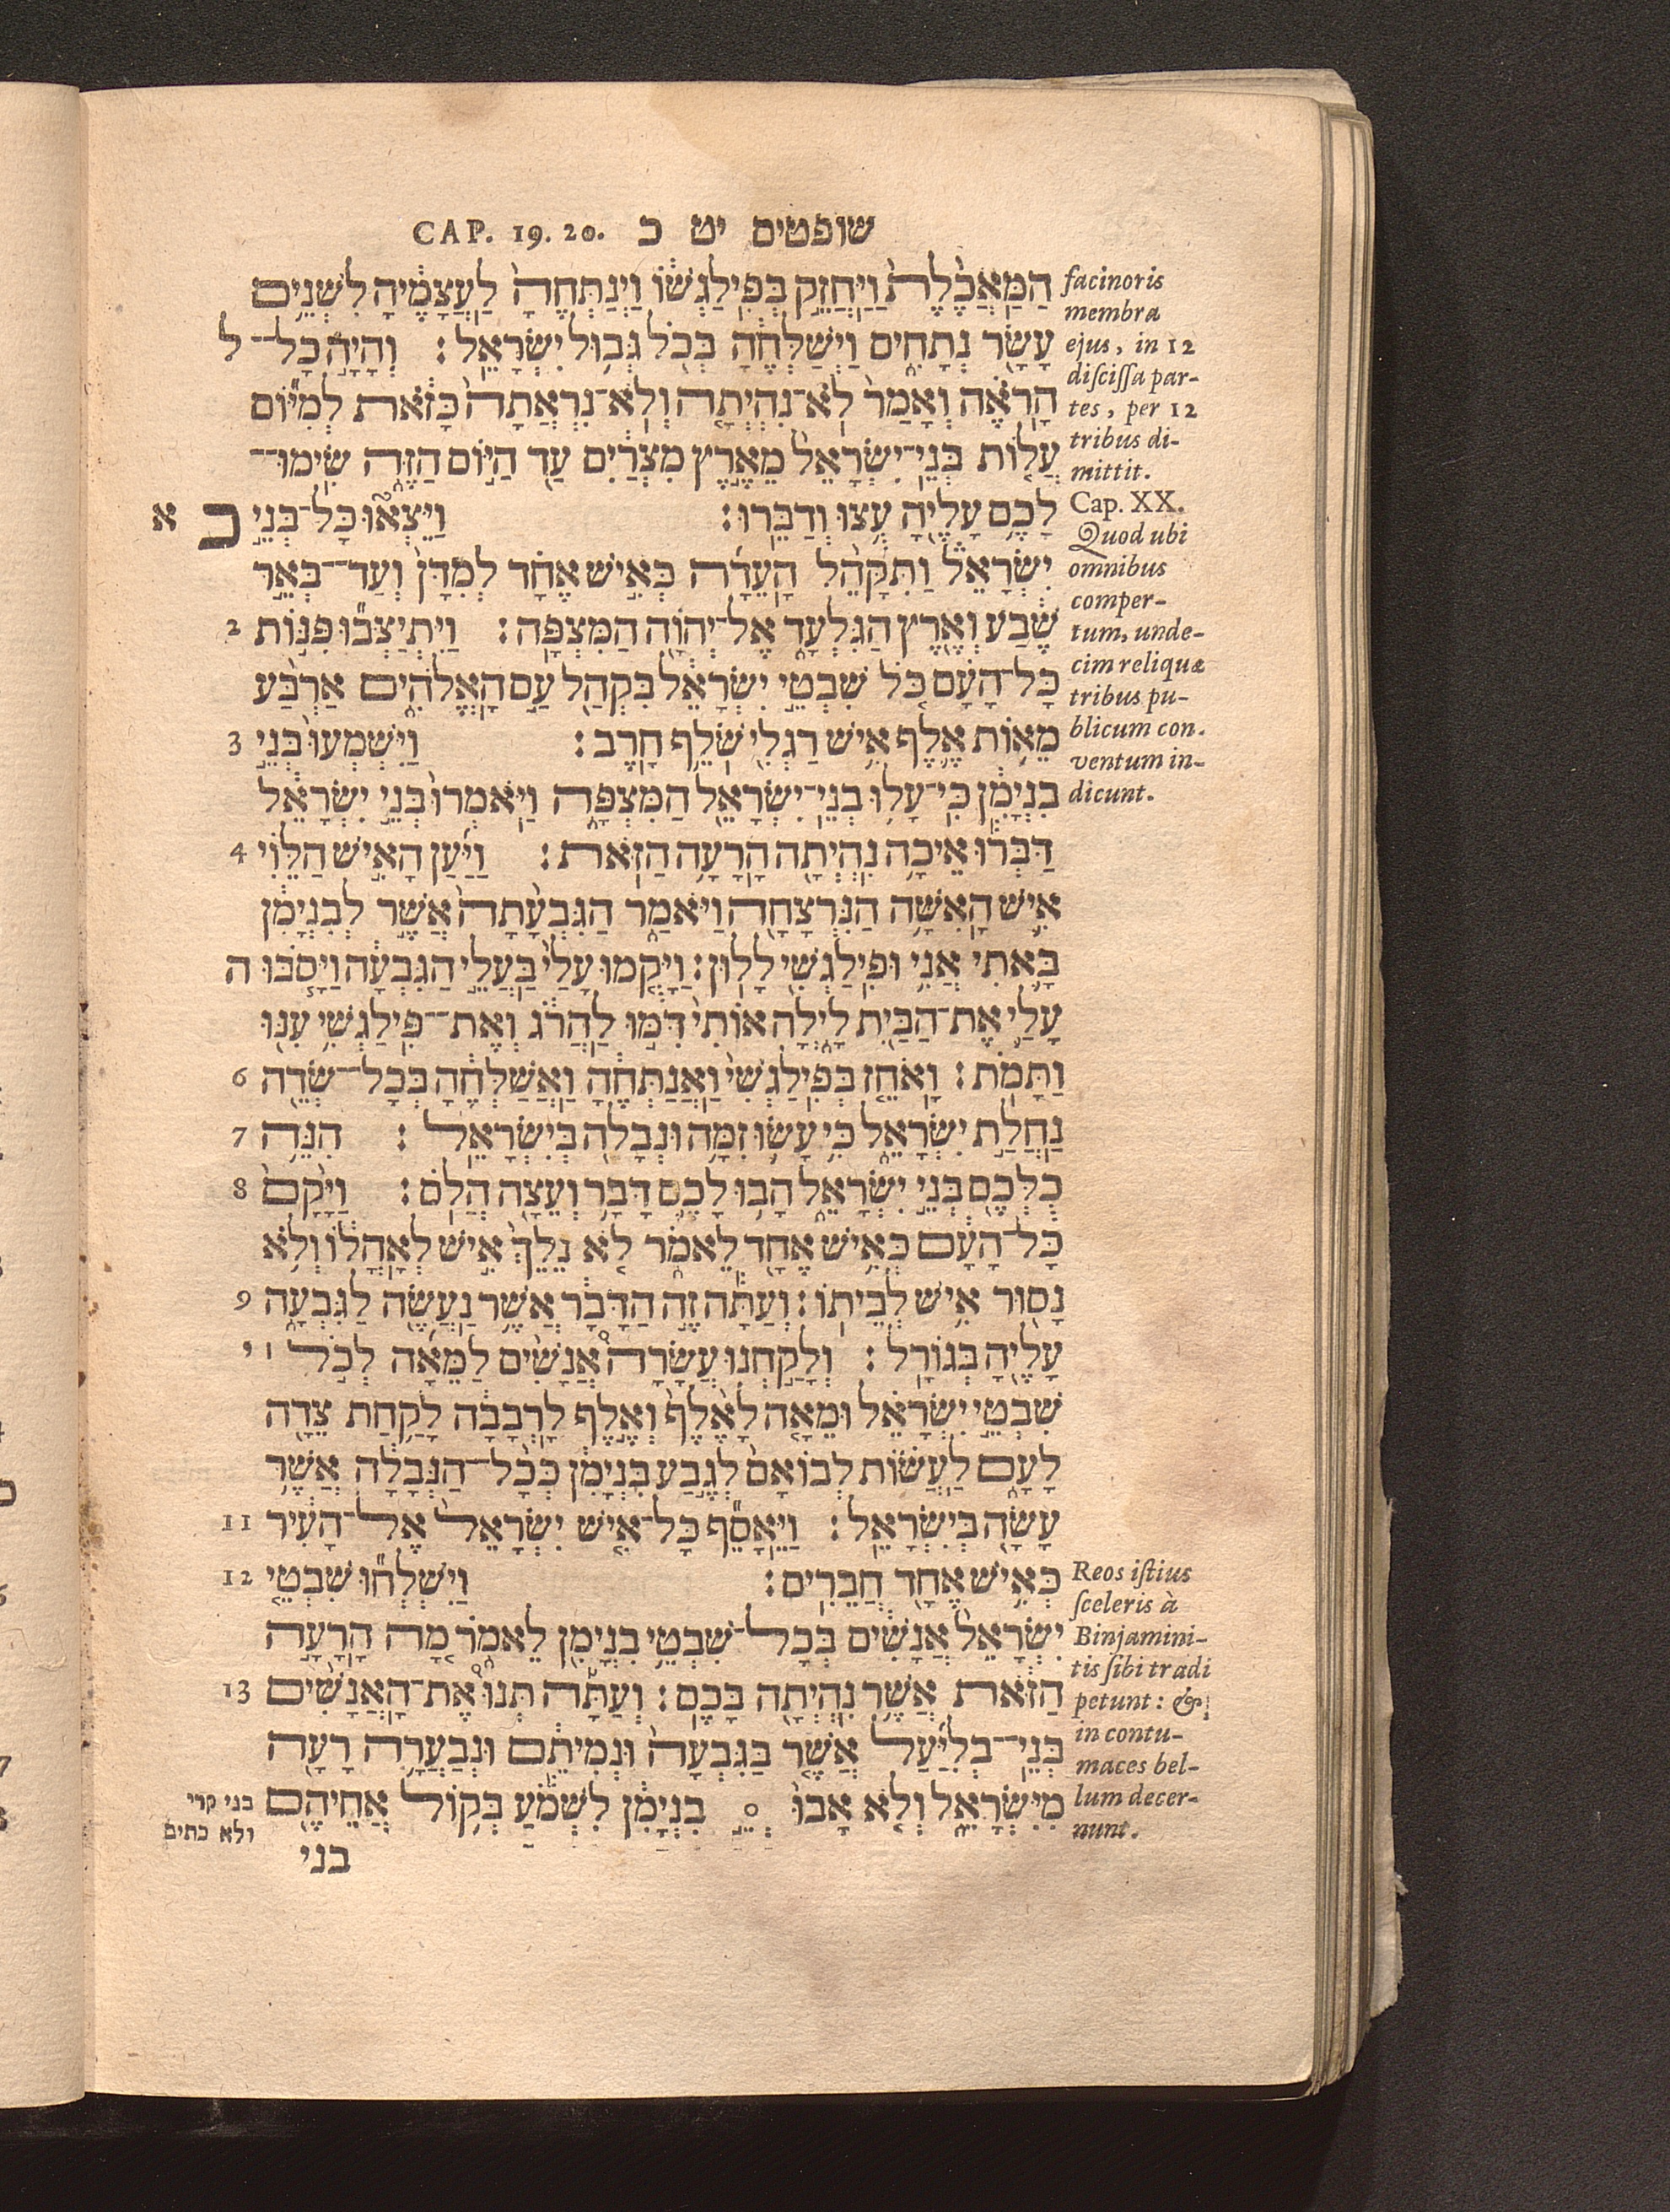 שופטים יט כ CAP. 19. 20.
הַמַּאֲכֶלֶת וַיַּחֲזֵק בְּפִילַגְשׁוֹ וַיְנַתְּחֶהָ לַעֲצָמֶיהָ לִשְׁנֵים
עָשָׂר נְתָחִים וַיְשַׁלְּחֶהָ בְּכֹל גְּבוּל יִשְׂרָאֵל׃ וְהָיָה כָל־ ל
הָרֹאֶה וְאָמַר לֹא־נִהְיְתָה וְלֹא־נִרְאֲתָה כָּזֹאת לְמִיּוֹם
עֲלוֹת בְּנֵי־יִשְׂרָאֵל מֵאֶרֶץ מִצְרַיִם עַד הַיּוֹם הַזֶּה שִׂימוּ־
לָכֶם עָלֶיהָ עֻצוּ וְדַבֵּרוּ׃ וַיֵּצְאוּ כָּל־בְּנֵי כ א
יִשְׂרָאֵל וַתִּקָּהֵל הָעֵדָה כְּאִישׁ אֶחָד לְמִדָּן וְעַד־בְּאֵר
שֶׁבַע וְאֶרֶץ הַגִּלְעָד אֶל־יְהוָה הַמִּצְפָּה׃ וַיִּתְיַצְּבוּ פִּנּוֹת 2
כָּל־הָעָם כֹּל שִׁבְטֵי יִשְׂרָאֵל בִּקְהַל עַם הָאֱלֹהִים אַרְבַּע
מֵאוֹת אֶלֶף אִישׁ רַגְלִי שֹׁלֵף חָרֶב׃ וַיִּשְׁמְעוּ בְּנֵי 3
בִנְיָמִן כִּי־עָלוּ בְנֵי־יִשְׂרָאֵל הַמִּצְפָּה וַיֹּאמְרוּ בְּנֵי יִשְׂרָאֵל
דַּבְּרוּ אֵיכָה נִהְיְתָה הָרָעָה הַזֹּאת׃ וַיַּעַן הָאִישׁ הַלֵּוִי 4
אִישׁ הָאִשָּׁה הַנִּרְצָחָה וַיֹּאמַר הַגִּבְעָתָה אֲשֶׁר לְבִנְיָמִן
בָּאתִי אֲנִי וּפִילַגְשִׁי לָלוּן׃ וַיָּקֻמוּ עָלַי בַּעֲלֵי הַגִּבְעָה וַיָּסֹבּוּ ה
עָלַי אֶת־הַבַּיִת לָיְלָה אוֹתִי דִּמּוּ לַהֲרֹג וְאֶת־פִּילַגְשִׁי עִנּוּ
וַתָּמֹת׃ וָאֹחֵז בְּפִילַגְשִׁי וָאֲנַתְּחֶהָ וָאֲשַׁלְּחֶהָ בְּכָל־שְׂדֵה 6
נַחֲלַת יִשְׂרָאֵל כִּי עָשׂוּ זִמָּה וּנְבָלָה בְּיִשְׂרָאֵל׃ הִנֵּה 7
כֻלְּכֶם בְּנֵי יִשְׂרָאֵל הָבוּ לָכֶם דָּבָר וְעֵצָה הֲלֹם׃ וַיָּקָם 8
כָּל־הָעָם כְּאִישׁ אֶחָד לֵאמֹר לֹא נֵלֵךְ אִישׁ לְאָהֳלוֹ וְלֹא
נָסוּר אִישׁ לְבֵיתוֹ׃ וְעַתָּה זֶה הַדָּבָר אֲשֶׁר נַעֲשֶׂה לַגִּבְעָה 9
עָלֶיהָ בְּגוֹרָל׃ וְלָקַחְנוּ עֲשָׂרָה אֲנָשִׁים לַמֵּאָה לְכֹל ׀ י
שִׁבְטֵי יִשְׂרָאֵל וּמֵאָה לָאֶלֶף וְאֶלֶף לָרְבָבָה לָקַחַת צֵדָה
לָעָם לַעֲשׂוֹת לְבוֹאָם לְגֶבַע בִּנְיָמִן כְּכָל־הַנְּבָלָה אֲשֶׁר
עָשָׂה בְּיִשְׂרָאֵל׃ וַיֵּאָסֵף כָּל־אִישׁ יִשְׂרָאֵל אֶל־הָעִיר 11
כְּאִישׁ אֶחָד חֲבֵרִים׃ וַיִּשְׁלְחוּ שִׁבְטֵי 12
יִשְׂרָאֵל אֲנָשִׁים בְּכָל־שִׁבְטֵי בִנְיָמִן לֵאמֹר מָה הָרָעָה
הַזֹּאת אֲשֶׁר נִהְיְתָה בָּכֶם׃ וְעַתָּה תְּנוּ אֶת־הָאֲנָשִׁים 13
בְּנֵי־בְלִיַּעַל אֲשֶׁר בַּגִּבְעָה וּנְמִיתֵם וּנְבַעֲרָה רָעָה
מִיִּשְׂרָאֵל וְלֹא אָבוּ ְ ֵ בִנְיָמִן לִשְׁמֹעַ בְּקוֹל אֲחֵיהֶם
בני קרי
ולא כתיב
בני
facinoris
membra
ejus, in 12
discissa par-
tes, per 12
tribus di-
mittit.
Cap. XX.
Quod ubi
omnibus
comper-
tum, unde-
cim reliquæ
tribus pu-
blicum con-
ventum in-
dicunt.
Reos istius
sceleris à
Binjamini-
tis sibi tradi
petunt: &
in contu-
maces bel-
lum decer-
nunt.